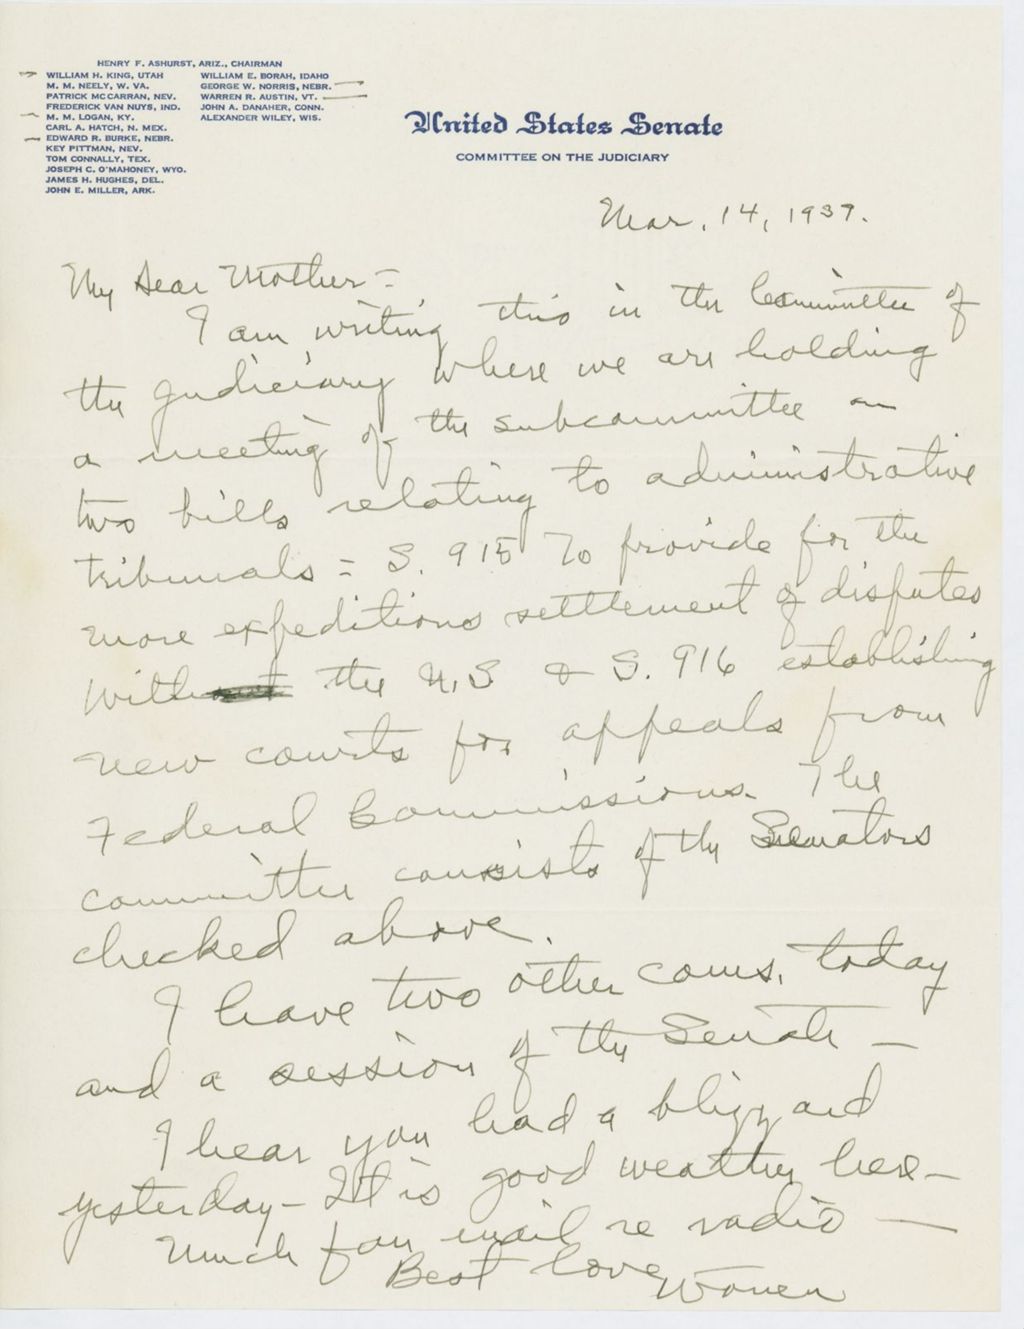 HENRY F. ASHURST, ARIZ., CHAIRMAN
WILLIAM H. KING, UTAH
M. M. NEELY, W. VA.
PATRICK MCCARRAN, NEV.
FREDERICK VAN NUYS, IND.
M. M. LOGAN, KY.
CARL A. HATCH, N. MEX.
EDWARD R. BURKE, NEBR.
KEY PITTMAN, NEV.
TOM CONNALLY, TEX.
JOSEPH C. O'MAHONEY, WYO.
JAMES H. HUGHES, DEL.
JOHN E. MILLER, ARK.
WILLIAM E. BORAH, IDAHO
GEORGE W. NORRIS, NEBR.
WARREN R. AUSTIN, VT.
JOHN A. DANAHER, CONN.
ALEXANDER WILEY, WIS.
United States Senate
COMMITTEE ON THE JUDICIARY
Mar. 14, 1939.
My Dear Mother =
I am writing this in the Committee of
the Judiciary where we are holding
a meeting of the subcommittee on
two bills relating to administrative
tribunals = S. 915 To provide for the
more expeditious settlement of disputes
with the U.S & S. 916 establishing
new courts for appeals from
Federal Commissions. The
committee consists of the Senators
checked above.
I have two other coms. today
and a session of the Senate —
I hear you had a blizzard
yesterday – It is good weather here –
Much fan mail re radio —
Best love, Warren